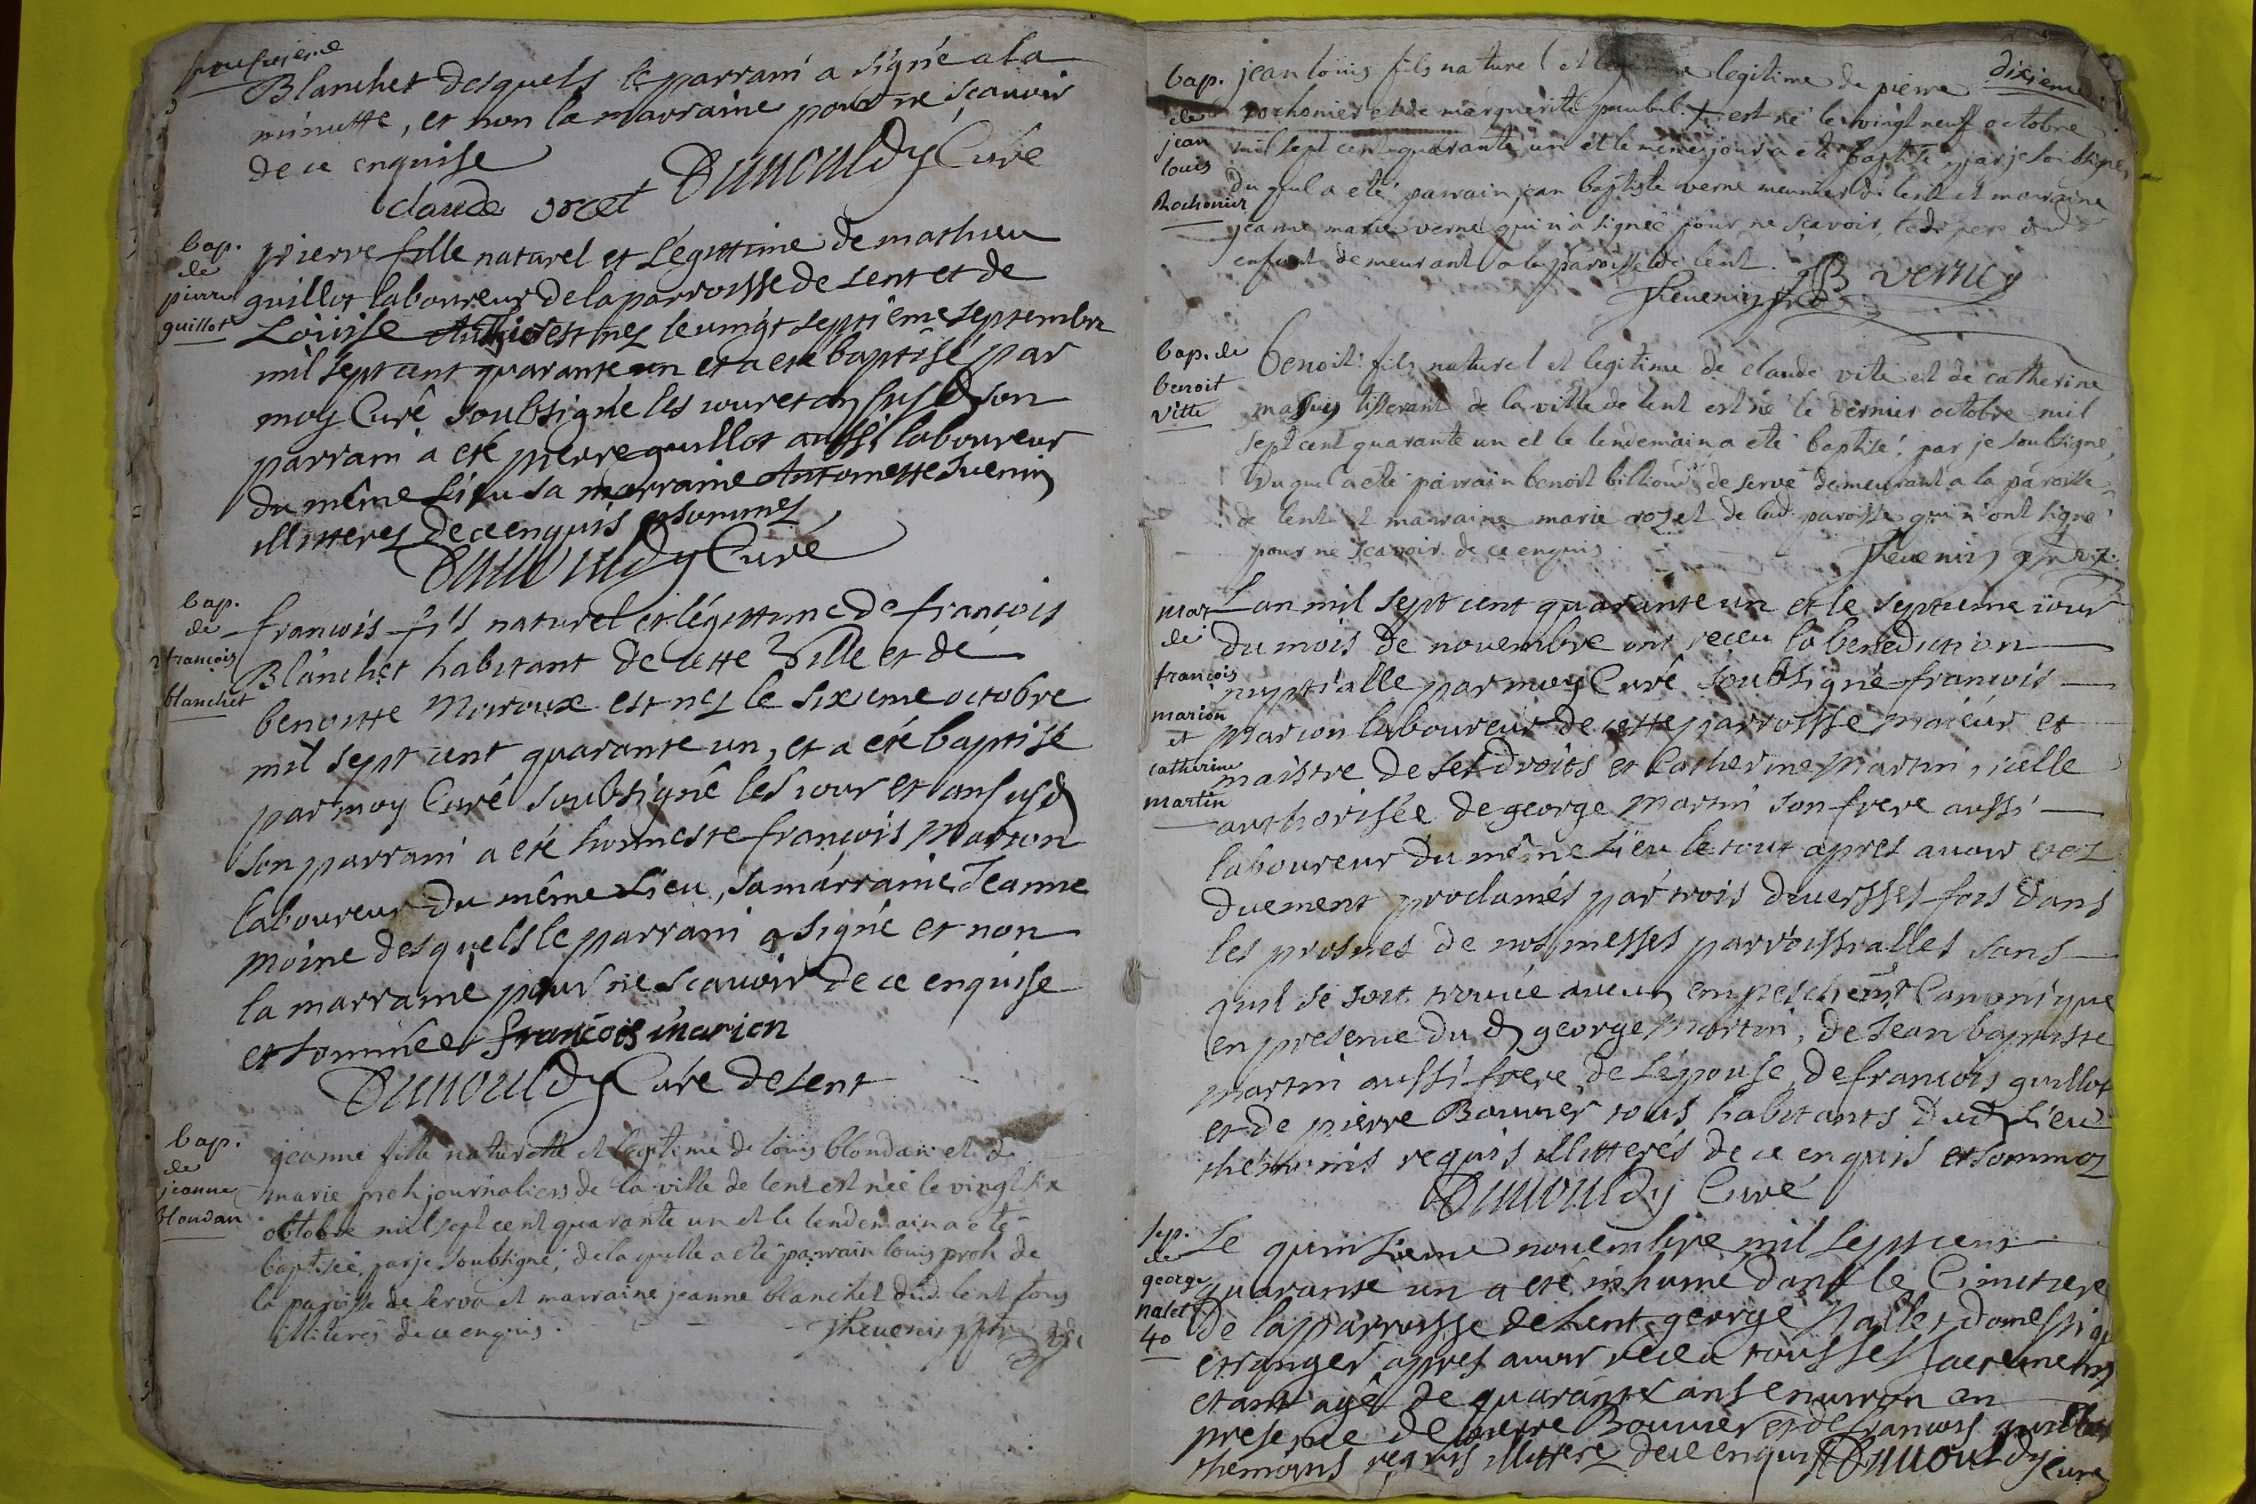 Blanchet desquels le parrain a signé a la
minutte, et non la marraine pour ne scauoir
de ce enquise
claude
Curé
bap.
de
pierre
guillot
pierre fille naturel et Légittime de mathieu
guillot laboureur de la parroisse de Lent et de
Louise est nez le vingt septiême septembre
mil sept cent quarante un et a eté baptisé par
moy Curé soubsigné les iour et an susd son
parrain a eté pierre guillot aussi laboureur
du même Lieu sa marraine Antoinette Iuenin
illitterez de ce enquis et sommez
Curé
bap.
de
françois
blanchet
francois fils naturel et légittime de francois
Blanchet habitant de cette Ville et de
benoitte est nez le sixieme octobre
mil sept cent quarante un, et a eté baptisé
par moy Curé soubsigné les iour et an susd
son parrain a eté honneste françois Marion
laboureur du même Lieu, sa marraine Jeanne
moine desquels le parrain a signé et non
la marraine pour ne scauoir de ce enquise
et sommée françois marion
Curé de Lent
bap.
de
jeanne
blondan
jeanne fille naturelle et legitime de louis blondan et de
marie proh journaliers de la ville de lent est née le vingt six
octobre mil sept cent quarante un et le lendemain a eté
baptisée par je soubsigné, de la quelle a eté parrain louis proh de
la paroisse de servâ et marraine jeanne blanchet dud. lent tous
illiterés de ce enquis. Theuenin
dixieme
bap.
de
jean
louis
Rochonier
jean loüis fils naturel et legitime de pierre
rochonier et de marguerite est né le vingt neuf octobre
mil sept cent quarante un et le même jour a eté baptisé par je soubsigné,
du quel a eté parrain jean baptiste verne meunier de lent et marraine
jeanne marie verne qui n'a signée pour ne scavoir, led. pere dud.
enfant demeurant a la paroisse de lent.
Theuenin JB verne
bap. de
benoit
vitte
benoit fils naturel et legitime de claude vite et de catherine
tisserant de la ville de lent est né le dernier octobre mil
sept cent quarante un et le lendemain a eté baptisé par je soubsigné,
du quel a eté parrain benoit billioud de servâ demeurant a la paroisse
de lent et marraine marie rozet de lad. paroisse qui n'ont signé
pour ne scavoir de ce enquis. Theuenin
mar
de
françois
marion
et
catherine
martin
Lan mil sept cent quarante un et le septieme iour
du mois de nouembre ont receu la benediction
nuptialle par moy Curé soubsigné francois
Marion laboureur de cette parroisse maieur et
maistre de ses droits et Catherine Martin, icelle
authorisée de george Martin son frere aussi
laboureur du même Lieu le tout apres auoir etez
duement proclamés par trois diuersses fois dans
les prosnes de nos messes parroissialles sans
quil se soit trouué aucun empeschemt Canonique
en presence dud george Martin, de Jean baptiste
martin aussi frere de Lépouse, de francois guillot
et de pierre Bouuier tous habitants dud Lieu
themoins requis illitterés de ce enquis et sommez
Curé
sep.
de
george
nalet
40
Le quinzieme nouembre mil sept cent
quarante un a eté inhumé dans le Cimetiere
de la parroisse de Lent george Nallet domestiq
etranger apres auoir receu tous ses sacrements
etant agé de quarante ans enuiron en
presence de pierre Bouuier et de francois guillot
themoins requis illitterez de ce enquis
Curé